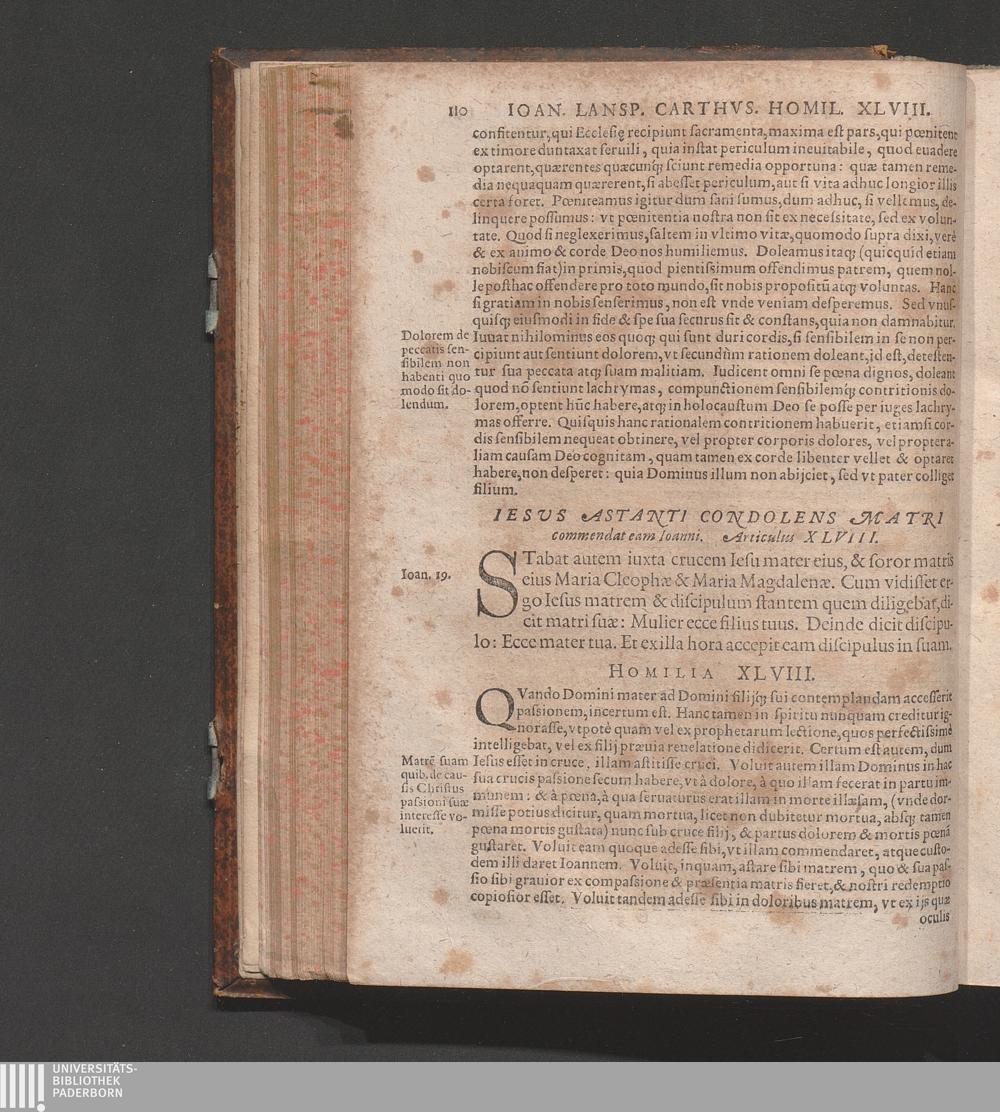 110 IOAN. LANSP. CARTHVS. HOMIL. XLVIII.
confitentur, qui Ecclesię recipiunt sacramenta, maxima est pars, qui pœnitent
ex timore duntaxat seruili, quia instat periculum ineuitabile, quod euadere
optarent, quærentes quæcunq; sciunt remedia opportuna: quæ tamen reme-
dia nequaquam quærerent, si abesset periculum, aut si vita adhuc longior illis
certa foret. Pœniteamus igitur dum sani sumus, dum adhuc, si vellemus, de-
linquere possumus: vt pœnitentia nostra non sit ex necessitate, sed ex volun-
tate. Quod si neglexerimus, saltem in vltimo vitæ, quomodo supra dixi, verè
& ex animo & corde Deo nos humiliemus. Doleamus itaq; (quicquid etiam
nobiscum fiat) in primis, quod pientissimum offendimus patrem, quem nol-
le posthac offendere pro toto mundo, sit nobis propositū atq; voluntas. Hanc
si gratiam in nobis senserimus, non est vnde veniam desperemus. Sed vnus-
quisq; eiusmodi in fide & spe sua securus sit & constans, quia non damnabitur.
Dolorem de
peccatis sen-
sibilem non
habenti quo
modo sit do-
lendum.
Iuuat nihilominus eos quoq; qui sunt duri cordis, si sensibilem in se non per-
cipiunt aut sentiunt dolorem, vt secundùm rationem doleant, id est, detesten-
tur sua peccata atq; suam malitiam. Iudicent omni se pœna dignos, doleant
quod nō sentiunt lachrymas, compunctionem sensibilemq; contritionis do-
lorem, optent hūc habere, atq; in holocaustum Deo se posse per iuges lachry-
mas offerre. Quisquis hanc rationalem contritionem habuerit, etiamsi cor-
dis sensibilem nequeat obtinere, vel propter corporis dolores, vel propter a-
liam causam Deo cognitam, quam tamen ex corde libenter vellet & optaret
habere, non desperet: quia Dominus illum non abijciet, sed vt pater colliget
filium.
IESVS ASTANTI CONDOLENS MATRI
commendat eam Ioanni. Articulus XLVIII.
Ioan. 19.
STabat autem iuxta crucem Iesu mater eius, & soror matris
eius Maria Cleophæ & Maria Magdalenæ. Cum vidisset er-
go Iesus matrem & discipulum stantem quem diligebat, di-
cit matri suæ: Mulier ecce filius tuus. Deinde dicit discipu-
lo: Ecce mater tua. Et ex illa hora accepit eam discipulus in suam.
HOMILIA XLVIII.
QVando Domini mater ad Domini filijq; sui contemplandam accesserit
passionem, incertum est. Hanc tamen in spiritu nunquam creditur ig-
norasse, vtpotè quam vel ex prophetarum lectione, quos perfectissimè
intelligebat, vel ex filij præuia reuelatione didicerit. Certum est autem, dum
Matrē suam
quib. de cau-
sis Christus
passioni suæ
interesse vo-
luerit.
Iesus esset in cruce, illam astitisse cruci. Voluit autem illam Dominus in hac
sua crucis passione secum habere, vt à dolore, à quo illam fecerat in partu im-
munem: & à pœna, à qua seruaturus erat illam in morte illæsam, (vnde dor-
misse potius dicitur, quam mortua, licet non dubitetur mortua, absq; tamen
pœna mortis gustata) nunc sub cruce filij, & partus dolorem & mortis pœnā
gustaret. Voluit eam quoque adesse sibi, vt illam commendaret, atque custo-
dem illi daret Ioannem. Voluit, inquam, astare sibi matrem, quo & sua pas-
sio sibi grauior ex compassione & præsentia matris fieret, & nostri redemptio
copiosior esset. Voluit tandem adesse sibi in doloribus matrem, vt ex ijs quæ
oculis
UNIVERSITÄTS-
BIBLIOTHEK
PADERBORN